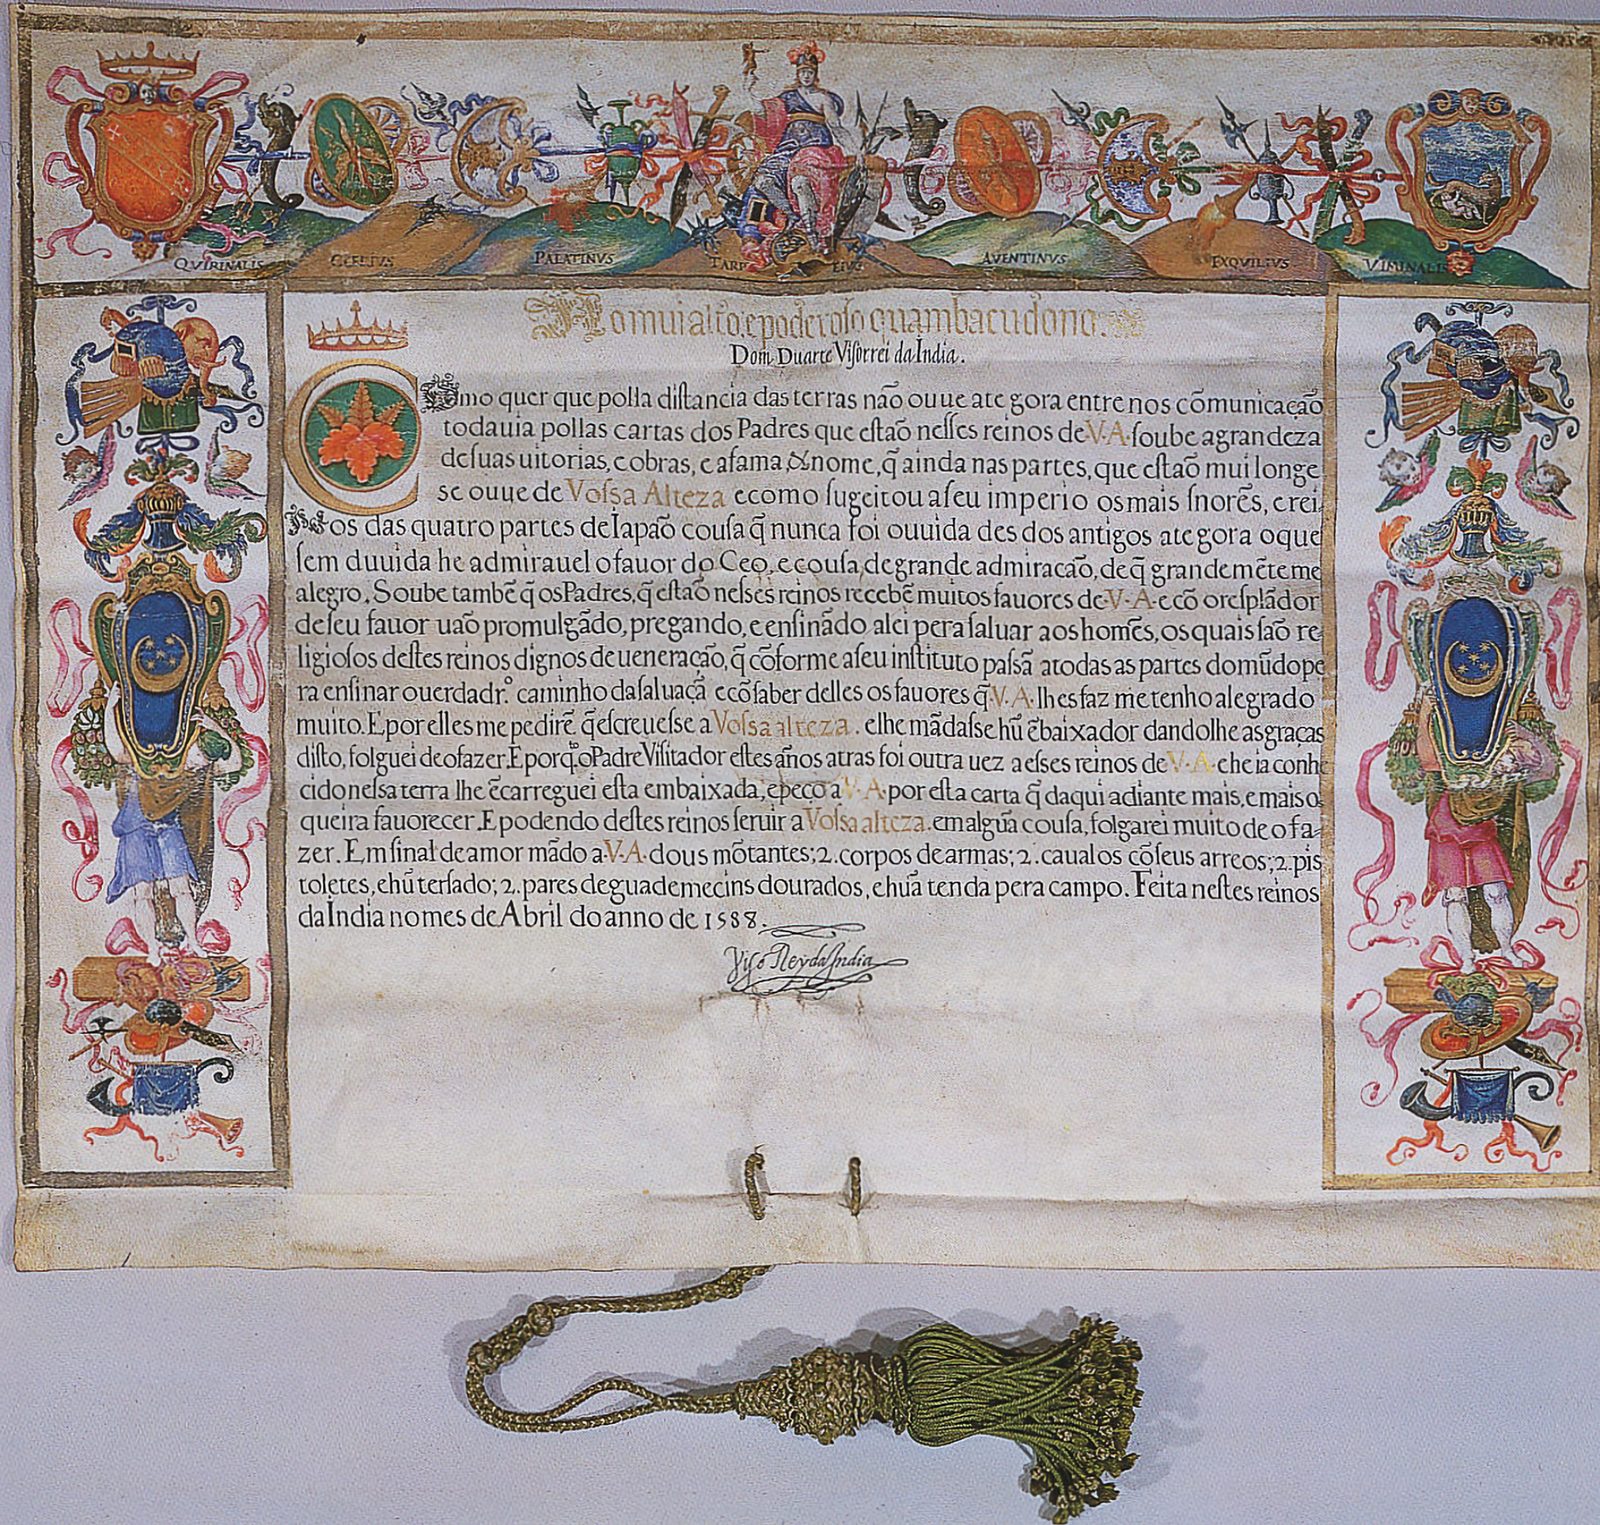 QVIRINALIS CELIVS PALATINVS TARP EIVS AVENTINVS EXQVILIVS VIMINALIS
Ao mui alto, e poderoso quambacudono.
Dom Duarte Visorrei da India.
Como quer que polla distancia das terras não ouue ate gora entre nos cõmunicação
todauia pollas cartas dos Padres que estaõ nesses reinos de V.A. soube a grandeza
de suas uitorias, e obras, e a fama, & nome, q̃ ainda nas partes, que estaõ mui longe
se ouue de Vossa Alteza e como sugeitou a seu imperio os mais snorẽs, e rei-
nos das quatro partes de Iapaõ cousa q̃ nunca foi ouuida des dos antigos ate gora o que
sem duuida he admirauel o fauor do Ceo, e cousa de grande admiracaõ, de q̃ grandemẽte me
alegro. Soube tambẽ q̃ os Padres, q̃ estaõ nesses reinos recebẽ muitos fauores de V.A. e cõ o resplãdor
de seu fauor uaõ promulgãdo, pregando, e ensinãdo a lei pera saluar aos homẽs, os quais saõ re-
ligiosos destes reinos dignos de ueneração, q̃ cõforme a seu instituto passã a todas as partes do mũdo pe
ra ensinar o uerdadr.º caminho da saluaçã e cõ saber delles os fauores q̃ V.A. lhes faz me tenho alegrado
muito. E por elles me pedirẽ q̃ escreuesse a Vossa alteza. e lhe mãdasse hũ ẽbaixador dandolhe as graças
disto, folguei de o fazer. E porq̃ o Padre Visitador estes años atras foi outra uez a esses reinos de V.A. e he ia conhe
cido nessa terra lhe ẽcarreguei esta embaixada, e peço a V.A. por esta carta q̃ daqui adiante mais, e mais o
queira fauorecer. E podendo destes reinos seruir a Vossa alteza. em algũa cousa, folgarei muito de o fa-
zer. Em sinal de amor mãdo a V.A. dous mõtantes; 2. corpos de armas; 2. caualos cõ seus arreos; 2. pis
toletes, e hũ tersado; 2. pares de guademecins dourados, e huã tenda pera campo. Feita nestes reinos
da India no mes de Abril do anno de 1588.
Viso Rey da India